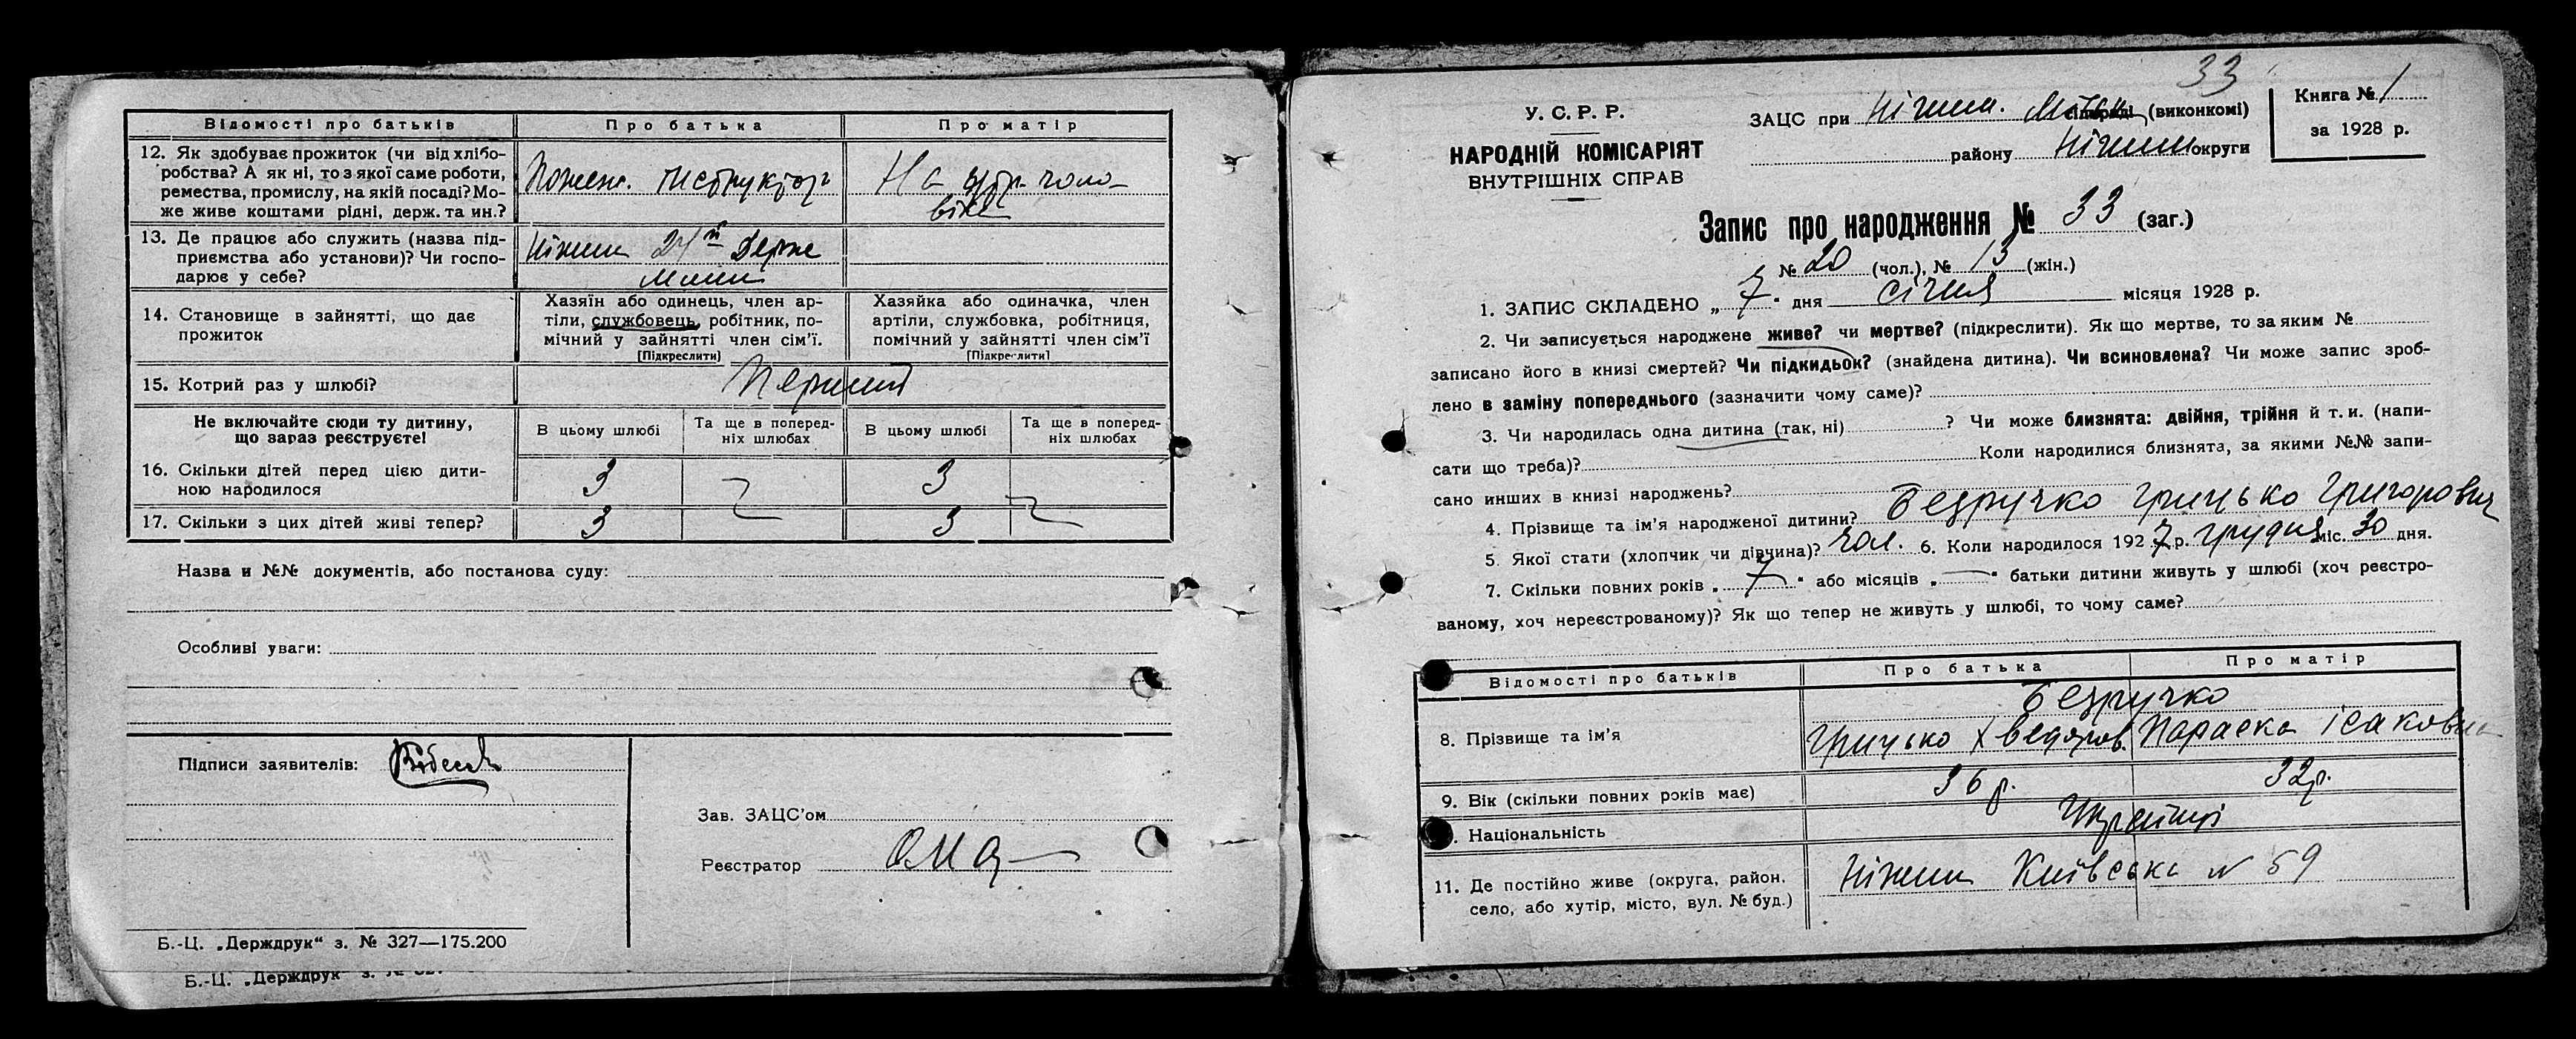 Відомості про батьків Про батька Про матір
12. Як здобуває прожиток (чи від хлібо-
робства? А як ні, то з якої саме роботи,
ремества, промислу, на якій посаді? Мо-
же живе коштами рідні, держ. та ин.?
На утр. чоло-
віка
13. Де працює або служить (назва під-
приємства або установи)? Чи госпо-
дарює у себе?
Ніжин
14. Становище в зайнятті, що дає
прожиток
Хазяїн або одинець, член ар-
тіли, службовець, робітник, по-
мічний у зайнятті член сім'ї.
[Підкреслити]
Хазяйка або одиначка, член
артіли, службовка, робітниця,
помічний у зайнятті член сім'ї
[Підкреслити]
15. Котрий раз у шлюбі? Перший
Не включайте сюди ту дитину,
що зараз реєструєте!
В цьому шлюбі Та ще в поперед-
ніх шлюбах В цьому шлюбі Та ще в поперед-
ніх шлюбах
16. Скільки дітей перед цією дити-
ною народилося 3 3
17. Скільки з цих дітей живі тепер? 3 3
Назва и №№ документів, або постанова суду:
Особливі уваги:
Підписи заявителів:
Зав. ЗАЦС'ом
Реєстратор
Б.-Ц. „Держдрук" з. № 327—175.200
Б.-Ц. „Держдрук" з. №
33
У. С. Р. Р.
НАРОДНІЙ КОМІСАРІЯТ
ВНУТРІШНІХ СПРАВ
ЗАЦС при Ніжин. (виконкомі)
району Ніжин округи
Книга № 1
за 1928 р.
Запис про народження № 33 (заг.)
№ 20 (чол.), № 13 (жін.)
1. ЗАПИС СКЛАДЕНО „ 7 " дня січня місяця 1928 р.
2. Чи записується народжене живе? чи мертве? (підкреслити). Як що мертве, то за яким №
записано його в книзі смертей? Чи підкидьок? (знайдена дитина). Чи всиновлена? Чи може запис зроб-
лено в заміну попереднього (зазначити чому саме)?
3. Чи народилась одна дитина (так, ні) ? Чи може близнята: двійня, трійня й т. и. (напи-
сати що треба)? Коли народилися близнята, за якими №№ запи-
сано инших в книзі народжень?
4. Прізвище та ім'я народженої дитини? Безручко Грицько Григорович
5. Якої стати (хлопчик чи дівчина)? чол. 6. Коли народилося 1927 р. грудня міс. 30 дня.
7. Скільки повних років „ 7 " або місяців „ — " батьки дитини живуть у шлюбі (хоч реєстро-
ваному, хоч нереєстрованому)? Як що тепер не живуть у шлюбі, то чому саме?
Відомості про батьків Про батька Про матір
Безручко
8. Прізвище та ім'я Грицько Хведоров. Параска Ісаковна
9. Вік (скільки повних років має) 36 р. 32 р.
. Національність Українці
11. Де постійно живе (округа, район,
село, або хутір, місто, вул. № буд.)
Ніжин Київська № 59